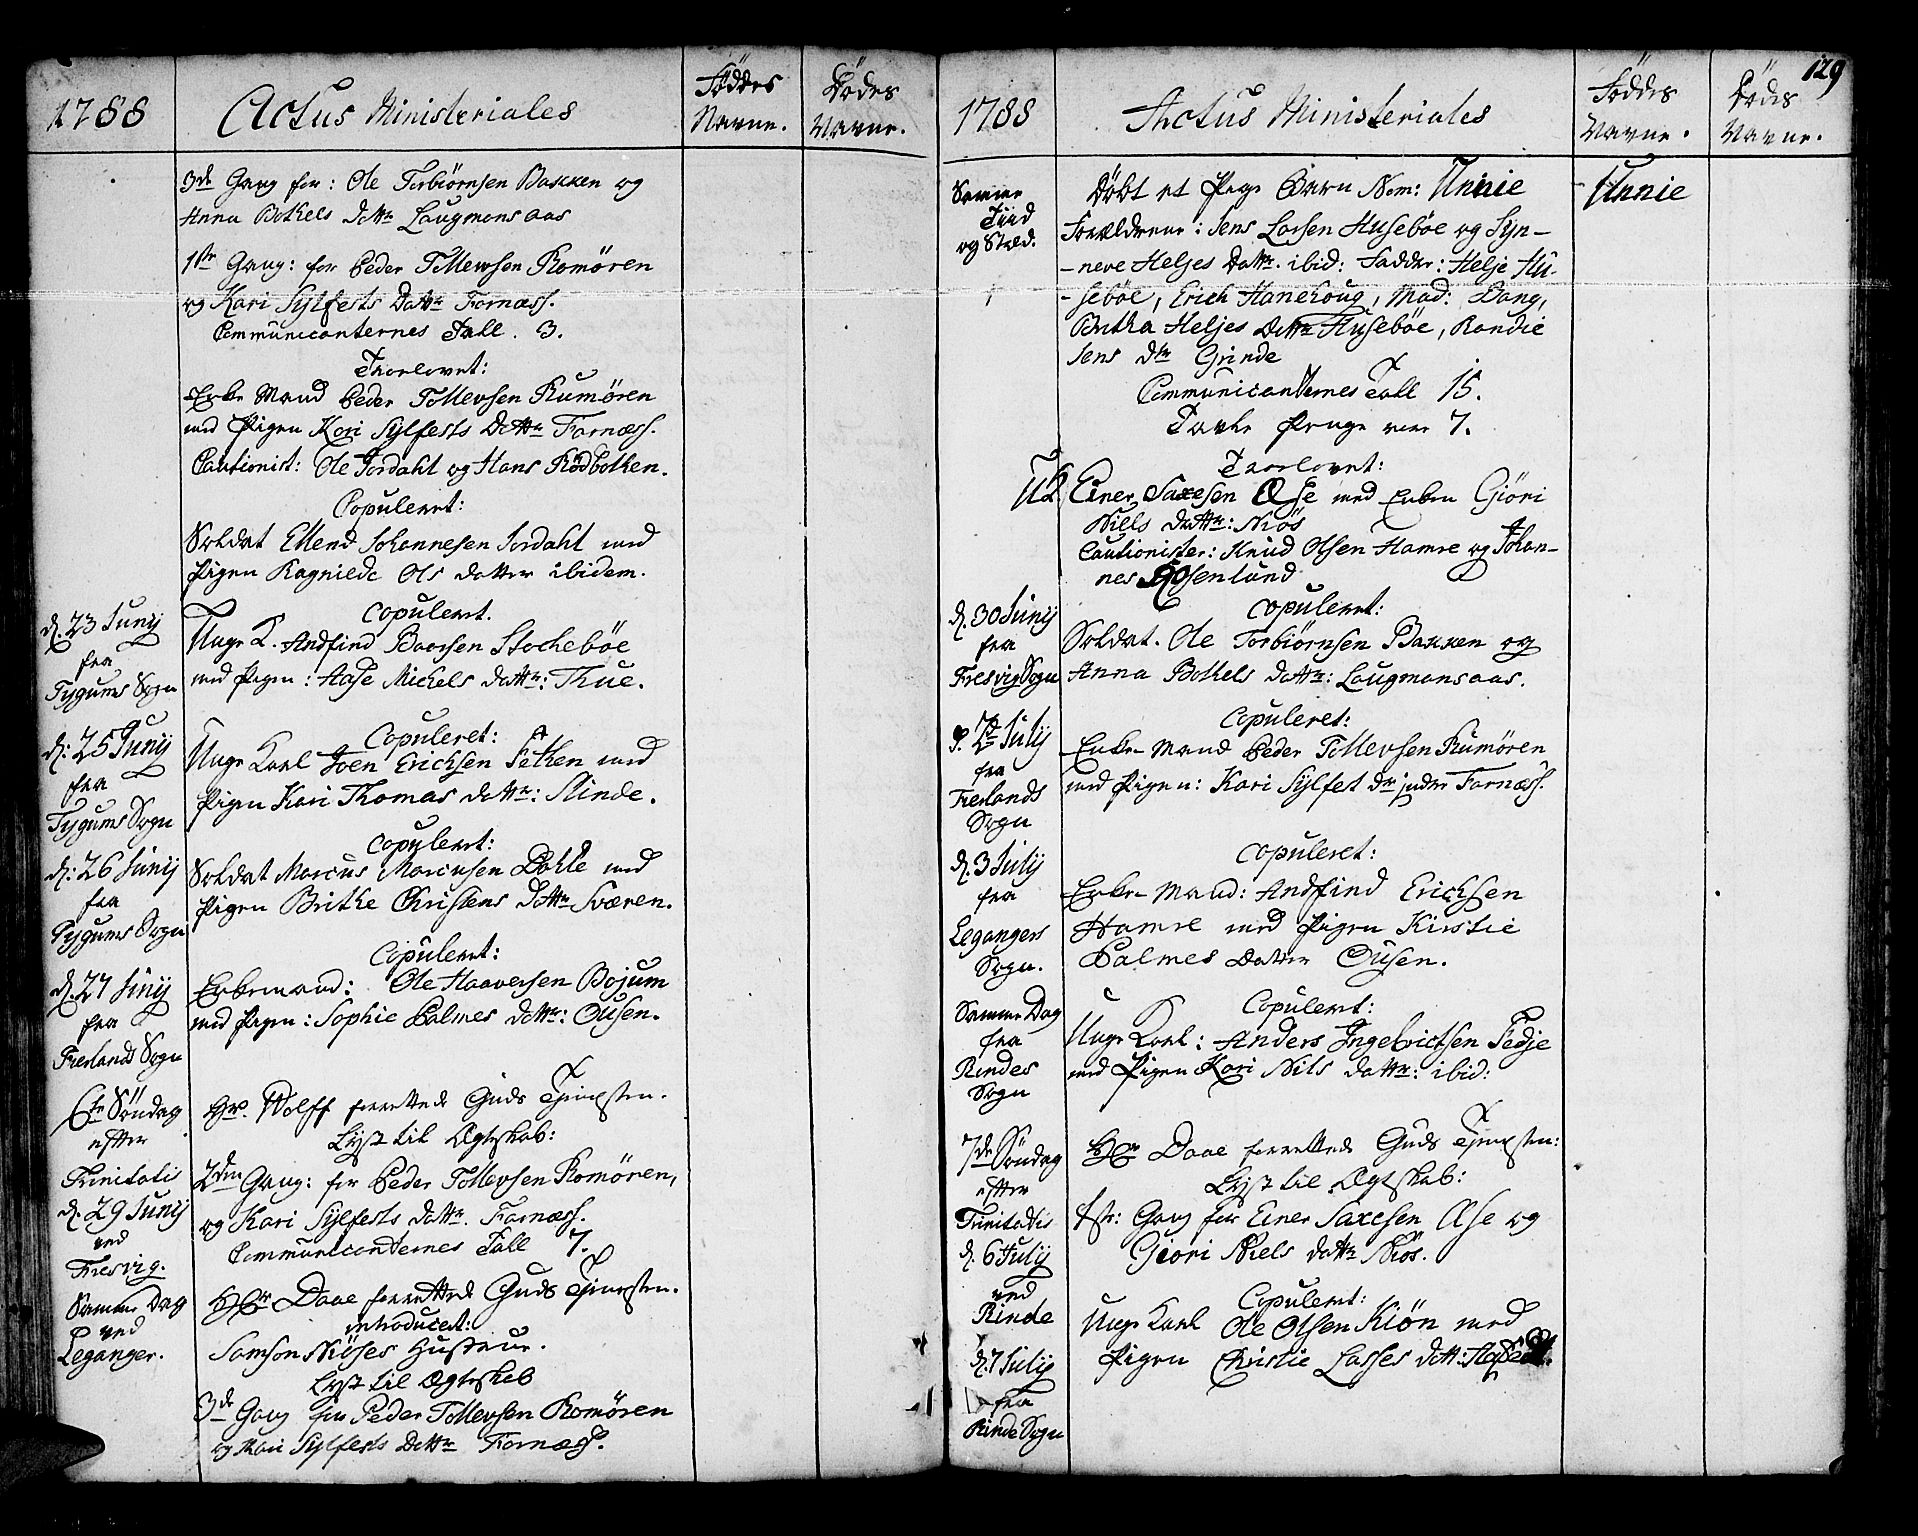 1788 Actus Ministeriales Föddes Døde
Navne. Navne.
3de Gang for: Ole Torbiörnsen Baxken og
Anna Bothels Dattr Laugmansaas
1ste Gang: for Peder Tollevsen Romören
og Kari Sylfests Dattr Farnæss.
Communicanternes Tall. 3.
Trorlovet:
Enke Mand Peder Tollevsen Rumören
med Pigen Kari Sylfests Dattr Farnæss.
Cautionist: Ole Jordahl og Hans Rödbotken.
Copuleret:
Soldat Ellend Johannesen Jordahl med
Pigen Ragniede Ols datter ibidem.
d. 23 Junij
fra
Tygums Sogn
Copuleret.
Unge K. Andfind Baarsen Stochebøe
med Pigen: Aase Michels dattr: Thue.
d: 25 Junij
fra
Tygums Sogn
Copuleret:
Unge Karl Joen Erichsen med
Pigen Kari Thomas dattr: Slinde.
d: 26 Junij
fra
Tygums Sogn
Copuleret:
Soldat Marcus Marcusen Dahle med
Pigen Brithe Christens Dattr Sværen.
d. 27 Junij
fra
Fierlands Sogn
Copuleret:
Enkemand: Ole Haaversen Bojum
med Pigen: Sophie Palmes dattr: Ousen.
6te Söndag
efter
Trinitatis
d. 29 Junij
ved
Fresvig.
Hr. Wolff forrettede Guds Tjenesten.
Lyst til Ægteskab:
2den Gang: for Peder Tollevsen Romören,
og Kari Sylfests dattr. Farnæss.
Communicanternes Tall 7.
Samme Dag
ved
Leganger.
Hr Daae forrettede Guds Tjenesten.
introduceret:
Samson Niöses Hustrue.
Lyst til Ægteskab
3de Gang for Peder Tollevsen Romören
og Kari Sylfests Dattr Farnæss.
129
1788 Actus Ministeriales Föddes Dødes
Navne. Navne.
Samme
Tiid
og Stæd.
Döbt et Pige Barn Nom: Unnie Unnie
Forældrene: Jens Larsen Husebøe og Syn-
-neve Heljes Dattr. ibid: Fadder: Helje Hu-
-sebøe, Erich Hanehoug, Mad: Dang,
Britha Heljes Dattr Husebøe, Randie
Jens dtr Grinde
Communicanternes Tall 15.
Tavle Penge vare 7.
Trorlovet:
Einer Saxesen Ose med Enken Giöri
Niels dattr: Niös
Cautionister: Knud Olsen Hamre og Johan-
nes Rosenlund
d. 30 Junij
fra
Fresvig Sogn
Copuleret:
Soldat. Ole Torbiörnsen Baxken og
Anna Bothels dattr: Laugmansaas.
d. 2de Julij
fra
Fierlands
Sogn
Copuleret:
Enke Mand Peder Tollevsen Rumören
med Pigen: Kari Sylfest dr indre Farnæss.
d. 3 Julij
fra
Legangers
Sogn.
Copuleret:
Enke Mand: Andfind Erichsen
Hamre med Pigen Kirstie
Palmes Datter Ousen.
Samme Dag
fra
Rindes
Sogn
Copuleret:
Unge Karl: Anders Ingebrictsen Fedje
med Pigen Kari Nils dattr: ibid:
7de Söndag
efter
Trinitatis
d. 6 Julij
ved
Rinde
Hr Daae forrettede Guds Tjenesten:
Lyst til Ægteskab:
1ste: Gang for Einer Saxesen Ose og
Giöri Niels dattr Niös.
d. 7 Julij
fra
Rinde Sogn
Copuleret:
Unge Karl Ole Olsen Kiøn med
Pigen Christie Lasses datt: